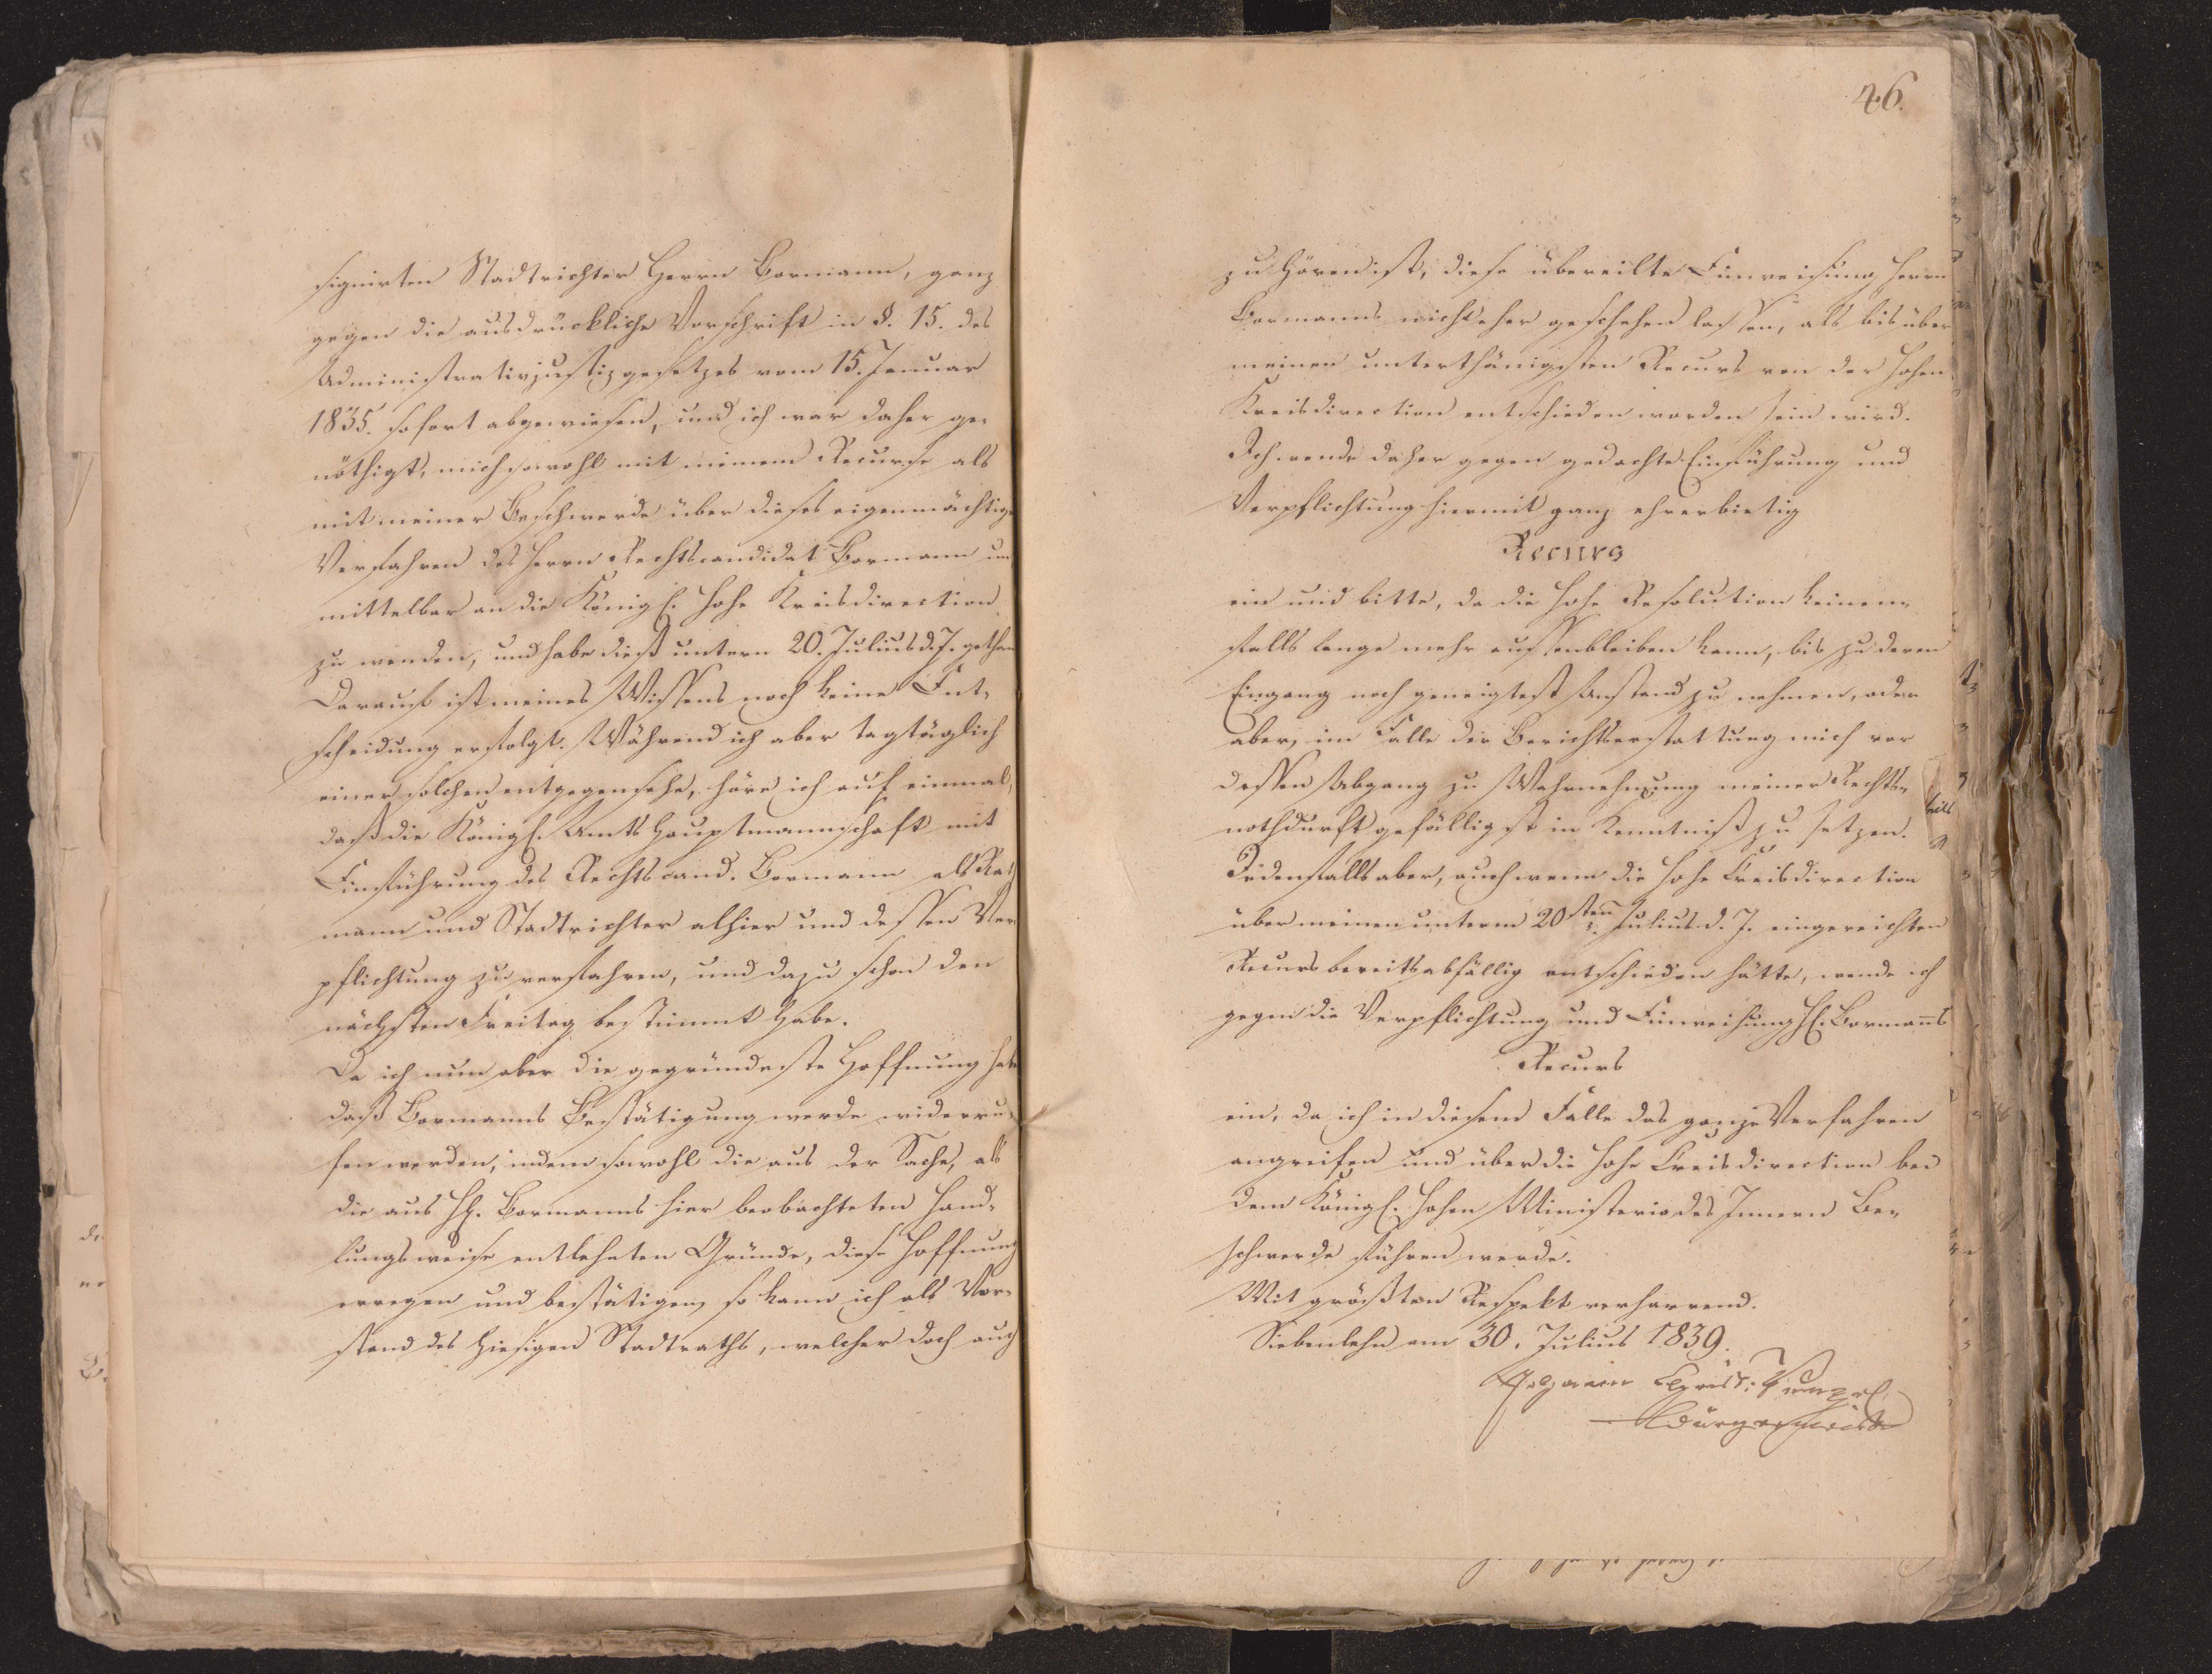 signirten Stadtrichter Herrn Bormann, ganz
gegen die ausdrückliche Vorschrift in §. 15. des
Administrativjustizgesetzes vom 15. Januar
1835. sofort abgewiesen, und ich war daher ge-
nöthigt, mich sowohl mit meinem Recurse als
mit meiner Beschwerde über dieses eigenmächtige
Verfahren des Herrn Rechtscandidat Bormann un
mittelbar an die Königl. hohe Kreisdirection
zu wenden, und habe dieß untern 20. Julius d. J. gethan
Darauf ist meines Wissens noch keine Ent-
scheidung erfolgt. Während ich aber tagtäglich
einer solchen entgegensehe, höre ich auf einmal,
daß die Königl. Amtshauptmannschaft mit
Einführung des Rechtscand. Bormann als Rath
mann und Stadtrichter alhier und dessen Ver
pflichtung zu verfahren, und dazu schon den
nächsten Freitag bestimmt habe.
Da ich nun aber die gegründeste Hoffnung habe
daß Bormanns Bestätigung werde widerru-
fen werden, indem sowohl die aus der Sache, als
die aus H. Bormanns hier beobachteten Hand-
lungsweise entlehnten Gründe, diese Hoffnung
erregen und bestätigen, so kann ich als Vor-
stand des hiesigen Stadtraths, welcher doch auch
46.
zu hören ist, diese übereilte Einweisung Herrn
Bormanns nicht eher geschehen lassen, als bis über
meinen unterthänigsten Recurs von der hohen
Kreisdirection entschieden worden sein wird.
Ich wende daher gegen gedachte Einführung und
Verpflichtung hiermit ganz ehrerbietig
Recurs
ein und bitte, da die hohe Resolution keinen-
falls lange mehr aussenbleiben kann, bis zu deren
Eingang noch geneigtest Anstand zu nehmen, oder
aber, im Falle der Berichtserstattung mich vor
dessen Abgang zu Wahrnehmung meiner Rechts-
nothdurft gefälligst in Kenntniß zu setzen.
Jedenfalls aber, auch wenn die hohe Kreisdirection
über meinen unterm 20sten Julius d. J. eingereichten
Recurs bereits abfällig entschieden hätte, wende ich
gegen die Verpflichtung und Einweihung H. Bormanns
Recurs
ein, da ich in diesem Falle das ganze Verfahren
angreifen und über die hohe Creisdirection bei
dem Königl. hohen Ministerio des Innern Be-
schwerde führen werde.
Mit größten Respekt verharrend.
Siebenlehn am 30. Julius 1839.
Johann Christ: Kunzel
Bürgermeister